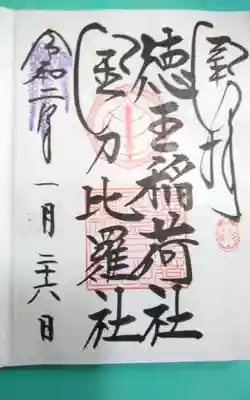 奉拝
徳王稲荷社
金刀比羅社
令和二年一月二十六日